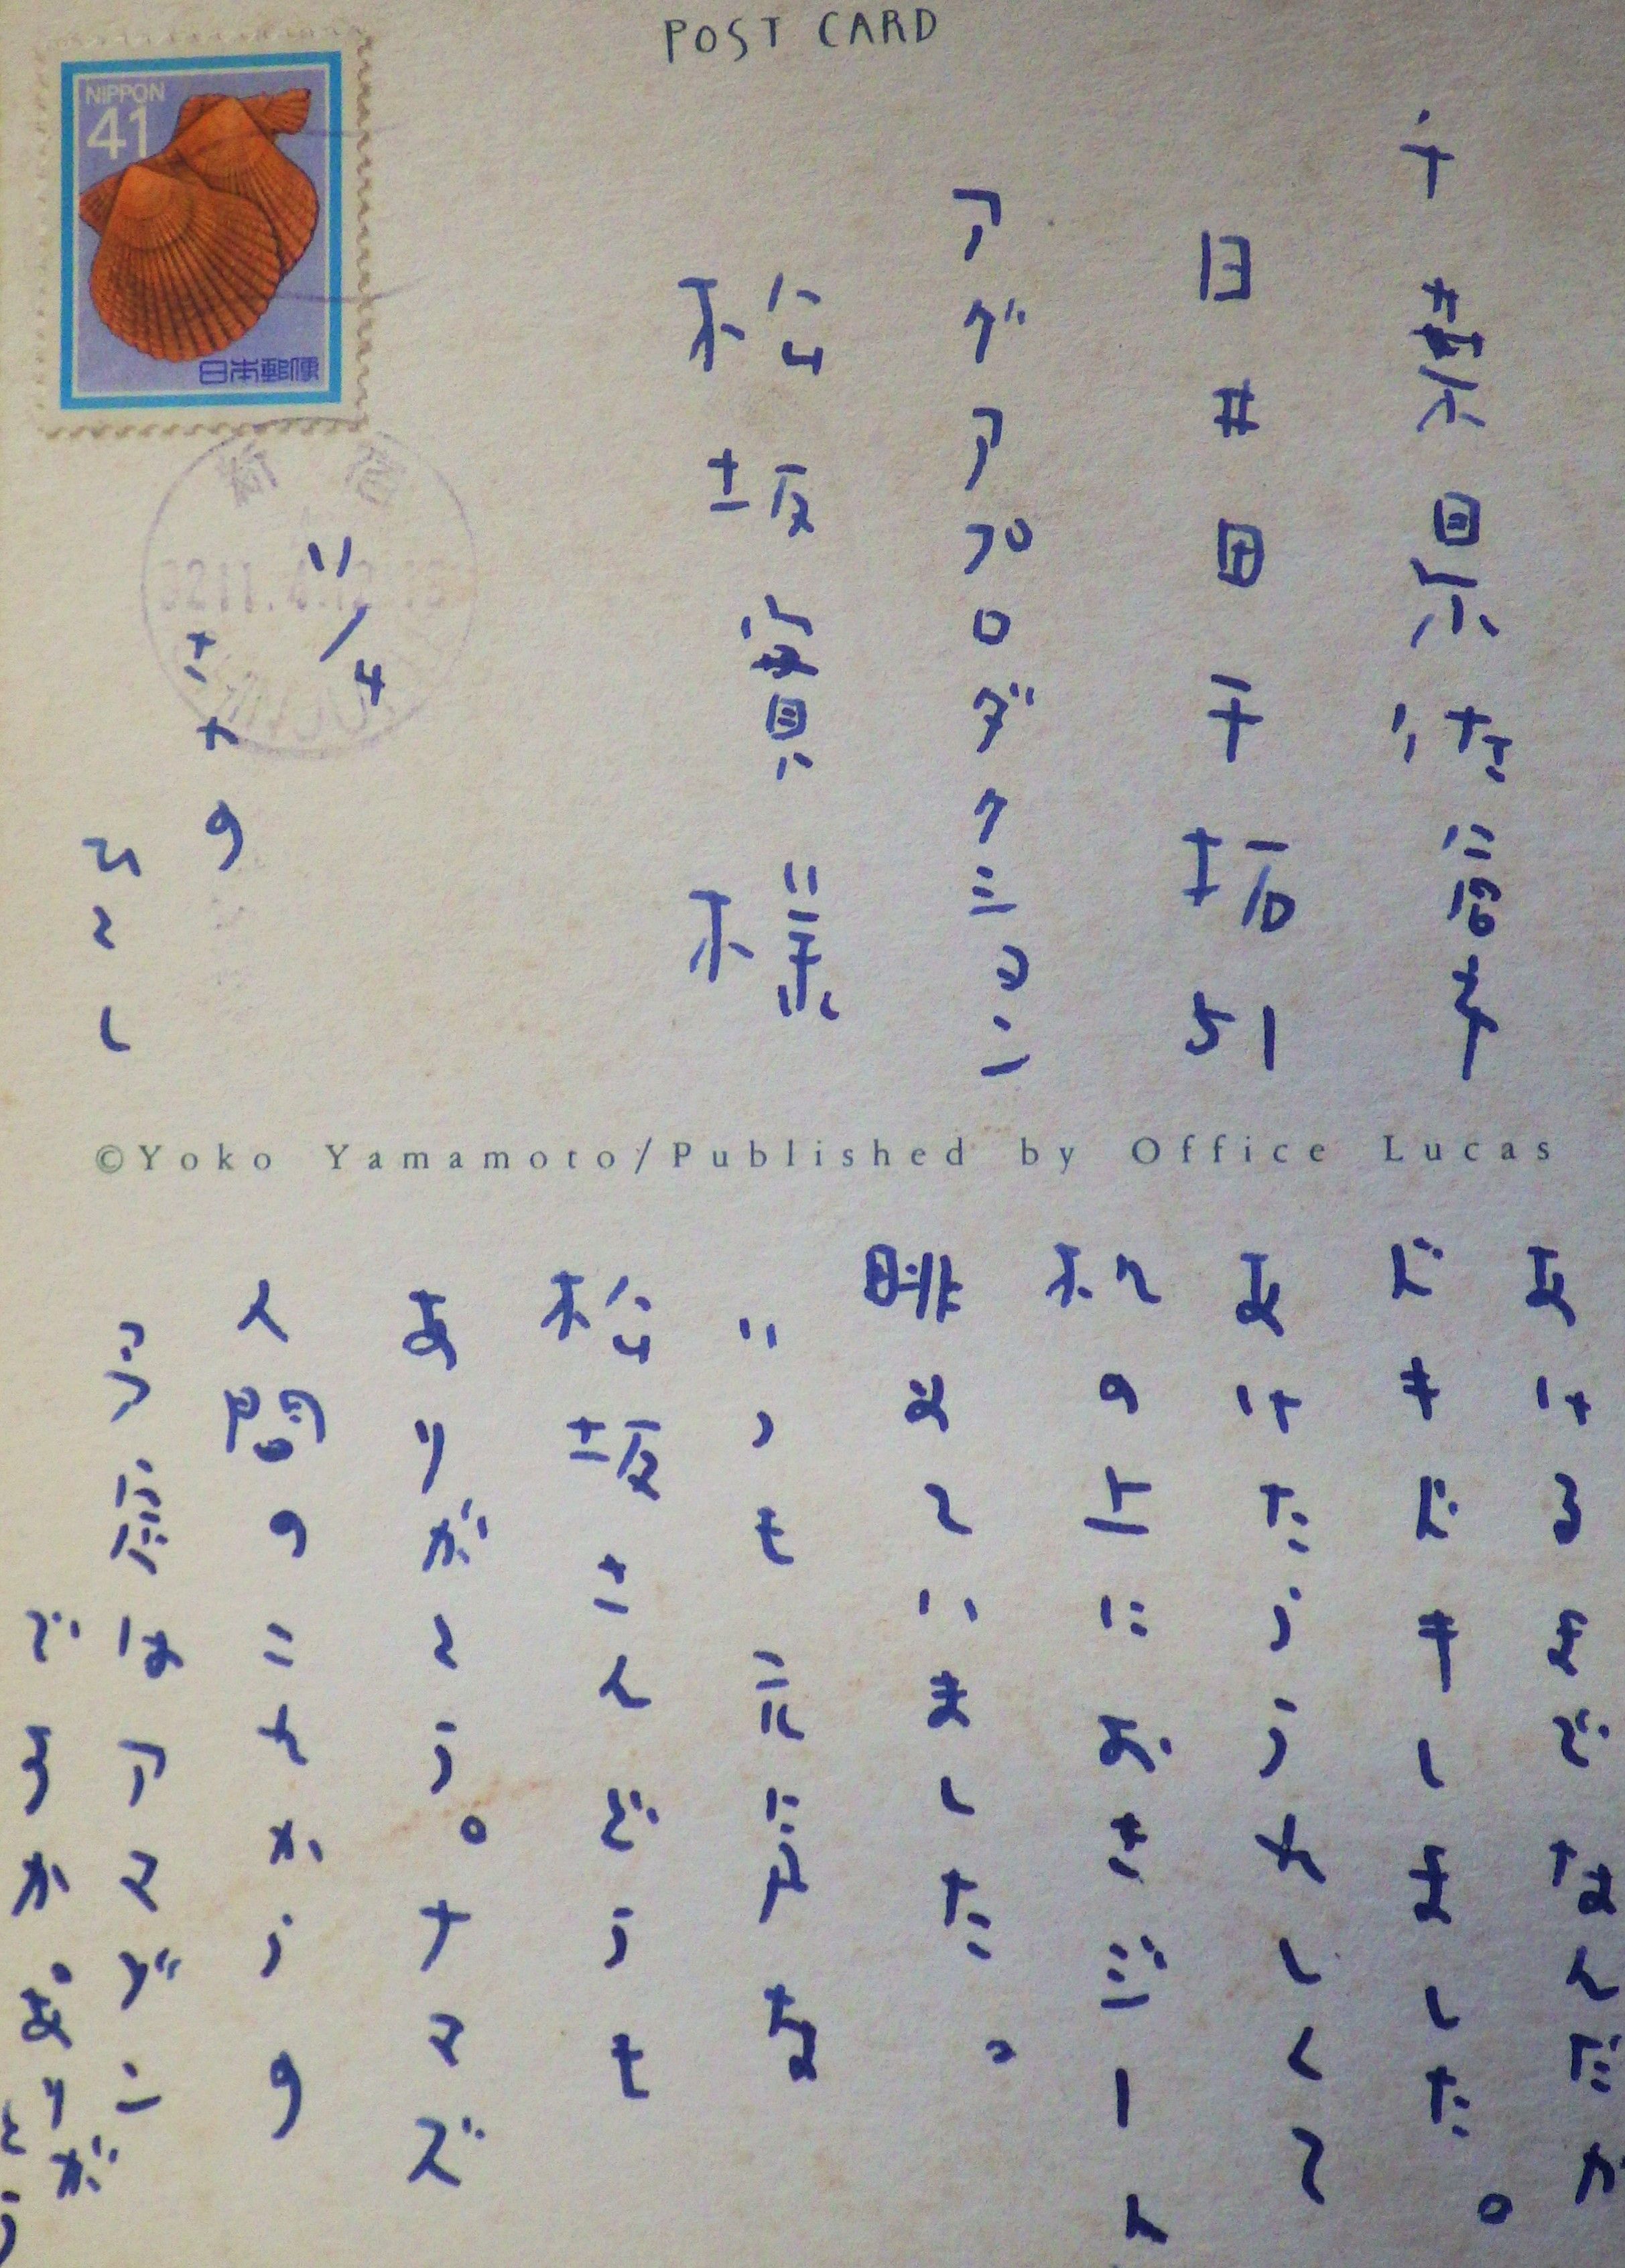 POST CARD
NIPPON
41
日本郵便
新宿
千葉県佐倉市
臼井田
51
アグアプロダクション
松坂實様
11/4
©Yoko Yamamoto/Published by Office Lucas
あけるまでなんだか
ドキドキしました。
あけたらうれしくて
机の上に
眺めていました。
いつも元気な
松坂さんどうも
ありがとう。ナマズ
人間の
はアマゾン
ありが
とう